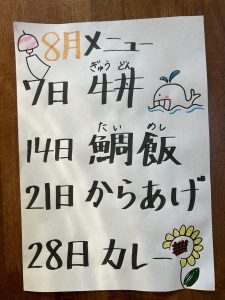 8月メニュー
ぎゅう どん
7日 牛丼
たい めし
14日 鯛飯
21日 からあげ
28日 カレー